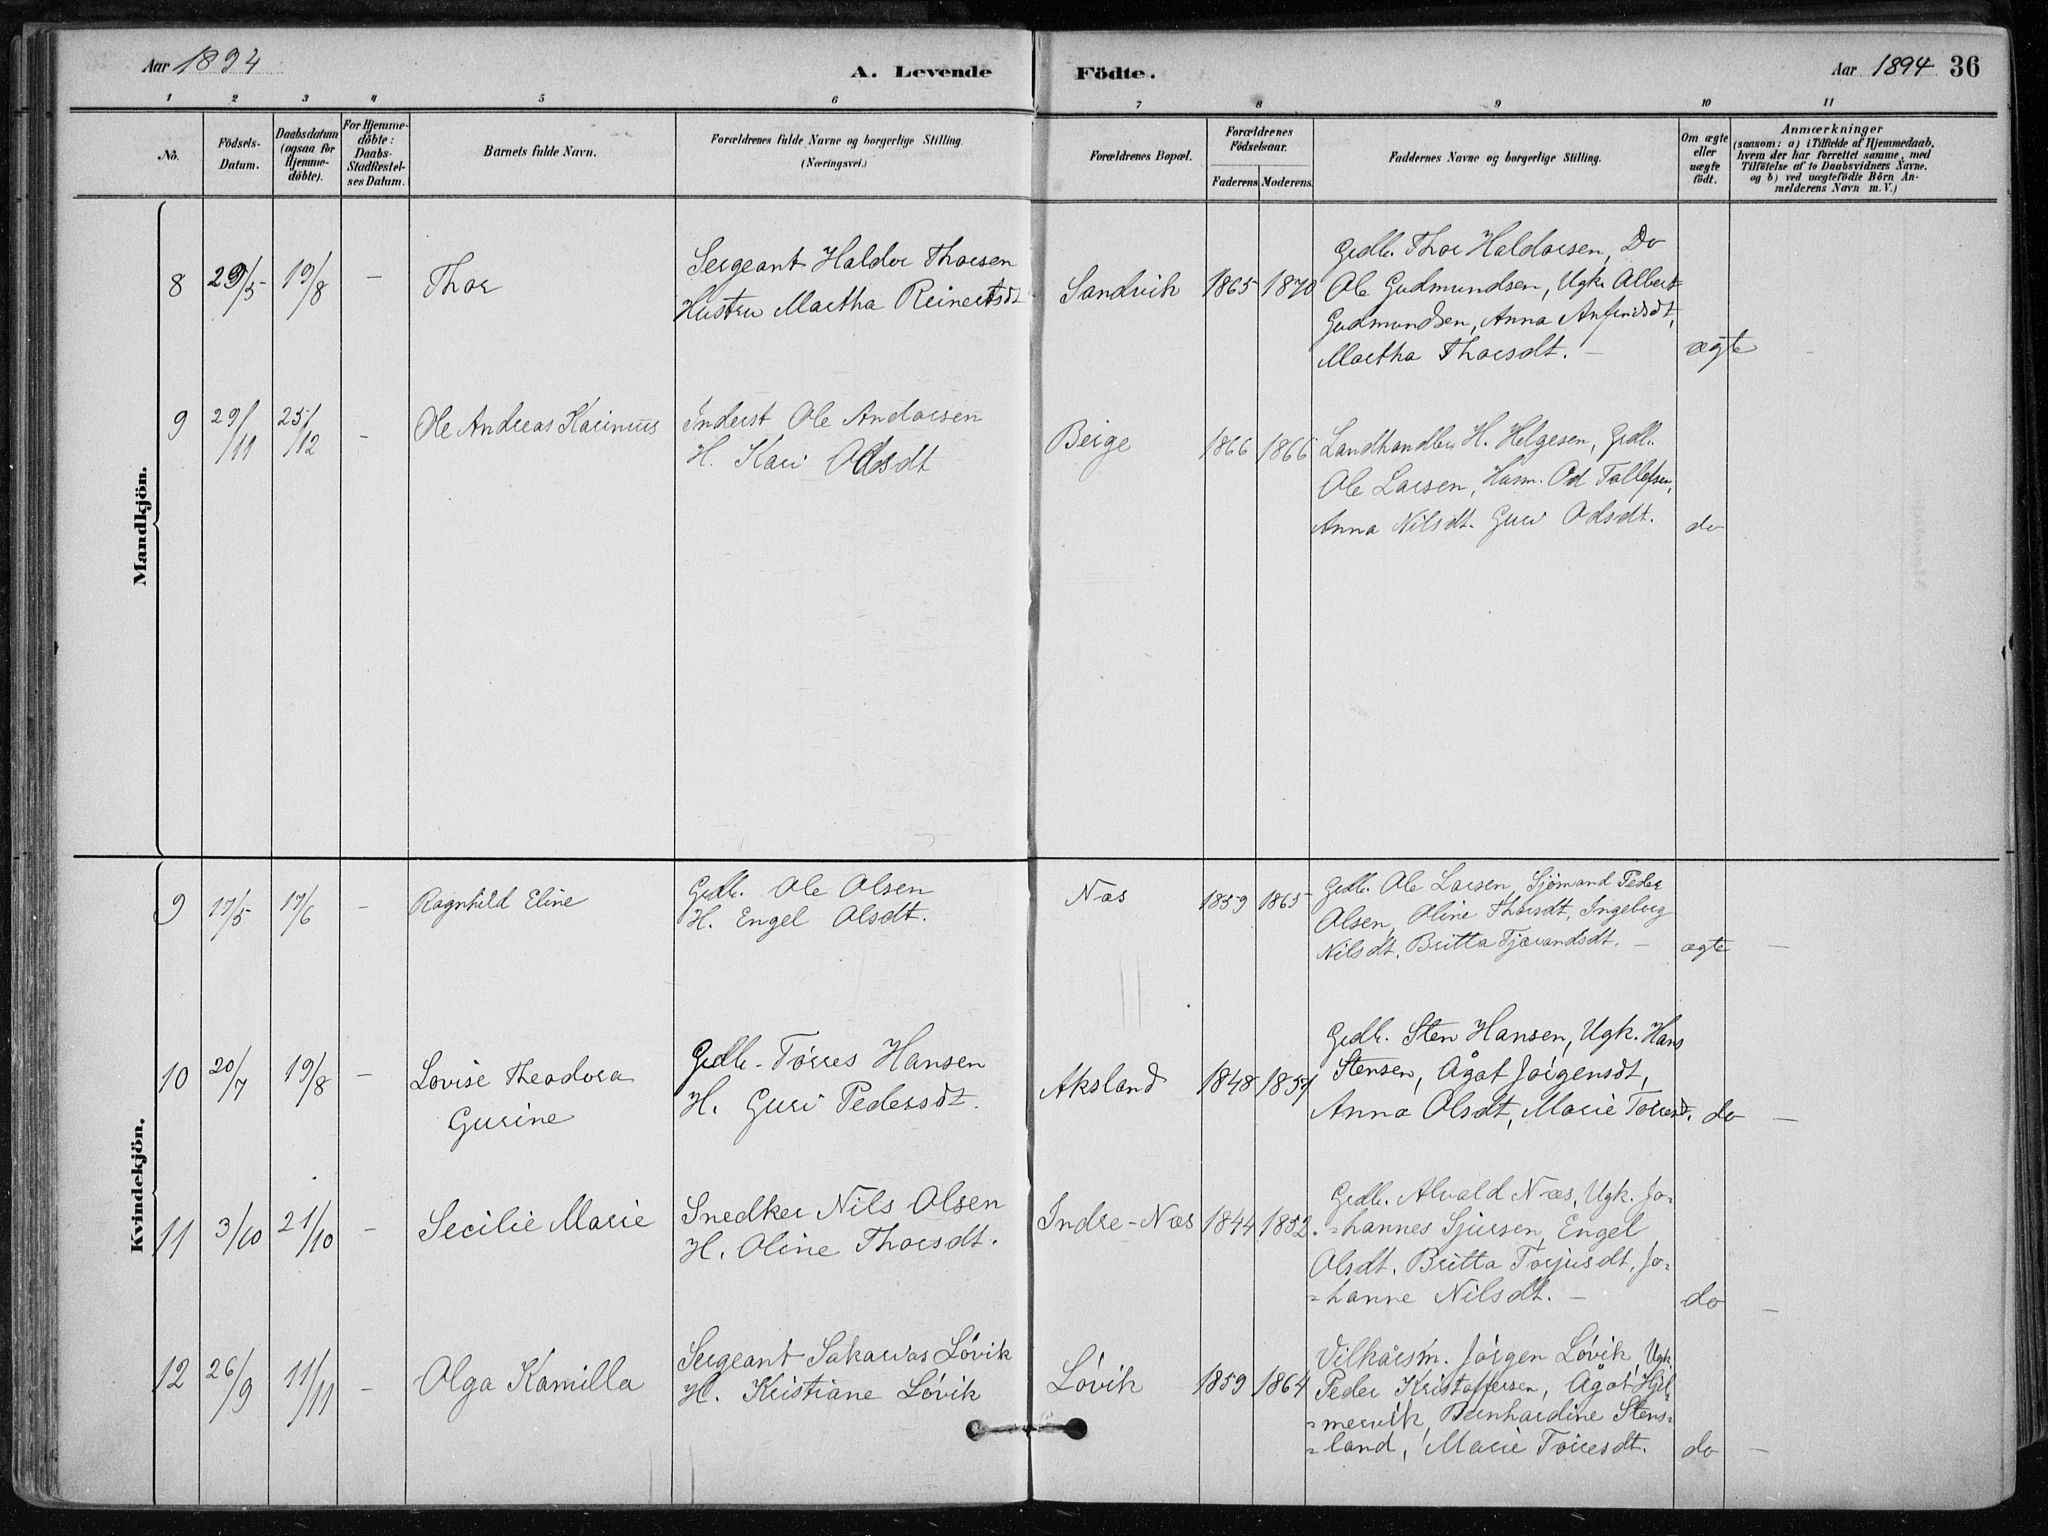 Aar 1894
A. Levende Födte.
Aar 1894 36
1 2 3 4 5 6 7 8 9 10 11
No.
Födsels-Datum.
Daabsdatum (ogsaa for Hjemme-döbte).
For Hjemme-döbte: Daabs-Stadfæstel-ses Datum.
Barnets fulde Navn.
Forældrenes fulde Navne og borgerlige Stilling.
(Næringsvei.)
Forældrenes Bopæl.
Forældrenes Födselsaar.
Faderens. Moderens.
Faddernes Navne og borgerlige Stilling.
Om ægte eller uægte födt.
Anmærkninger
(saasom: a) i Tilfælde af Hjemmedaab,
hvem der har forrettet samme, med
Tilföielse af to Daabsvidners Navne,
og b) ved uægtefödte Börn An-
melderens Navn m. V.)
Mandkjön.
8 29/5 19/8 – Thor
Sergeant Haldor Thorsen
Hustru Martha Reinertsdt
Sandvik 1865 1870
Grdbr. Thor Haldorsen, Do
Ole Gudmundsen, Ugkr Albert
Gudmundsen, Anna Anfindsdt,
Martha Thorsdt. –
ægte –
9 29/11 25/12 – Ole Andreas Karinius
Inderst Ole Andorsen
H. Kari Odsdt
Berge 1866 1866
Landhandler H. Helgesen, Grdb.
Ole Larsen, Husm. Od Tollefsen,
Anna Nilsdt. Guri Odsdt.
do
Kvindekjön.
9 17/5 17/6 – Ragnhild Eline
Grdbr. Ole Olsen
H. Engel Olsdt.
Næs 1859 1865
Grdbr. Ole Larsen, Sjømand Peder
Olsen, Oline Thorsdt, Ingeborg
Nilsdt, Britta Tjærandsdt. –
ægte –
10 20/7 19/8 – Lovise Theodora
Gurine
Grdbr. Tórres Hansen
H. Guri Pedersdt.
Aksland 1848 1857
Grdbr. Sten Hansen, Ugk. Hans
Stensen, Ågot Jørgensdt,
Anna Olsdt, Marie Torresdt.
do –
11 3/10 21/10 – Secilie Marie
Snedker Nils Olsen
H. Oline Thorsdt.
Indre-Næs 1844 1852
Grdbr. Alvald Næs, Ugk. Jo-
=hannes Sjursen, Engel
Olsdt. Britta Torjusdt, Jo=
=hanne Nilsdt. –
do –
12 26/9 11/11 – Olga Kamilla
Sergeant Sakarias Lövik
H. Kristiane Lövik
Lövik 1859 1864
Vilkårsm. Jörgen Lövik, Ugk.
Peder Kristoffersen, Ågot Hjel-
=mervik, Bernhardine Stens=
=land, Marie Torresdt.
do –